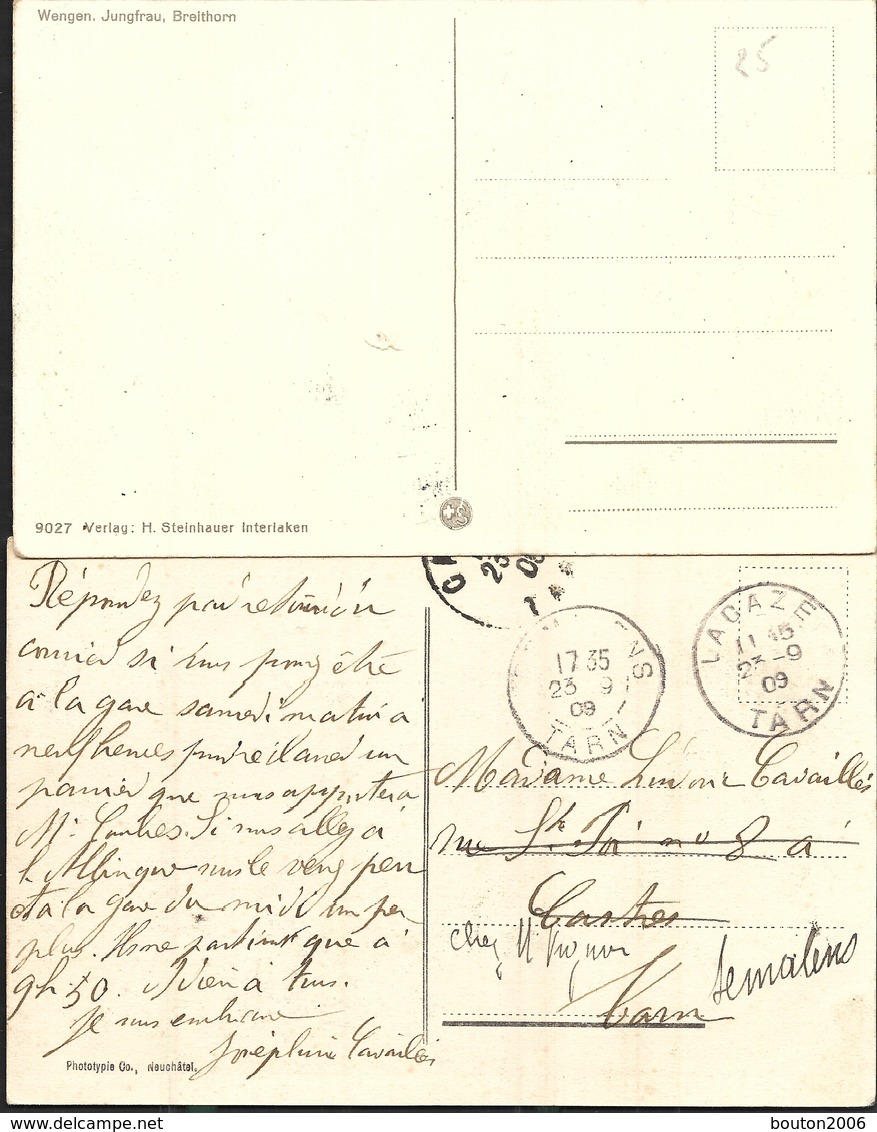 Wengen. Jungfrau, Breithorn
25
9027 Verlag: H. Steinhauer Interlaken
Répondez par retour du
courrier si vous pouvez être
à la gare samedi matin à
neuf heures pour réclamer un
panier que vous apportera
Mr. Combes. Si vous allez à
l'Albinque vous le venez peu
et à la gare du midi un peu
plus. Ils ne partiront que à
9h 50. Adieu à tous.
Je vous embrasse
Joséphine Cavaillès
Phototypie Co., Neuchâtel.
17 35
23 9
09
TARN
LACAZE
11 45
23 - 9
09
TARN
Madame Cavaillès
rue St. nº 8 à
Castres
chez M
Semalens
Tarn
bouton2006